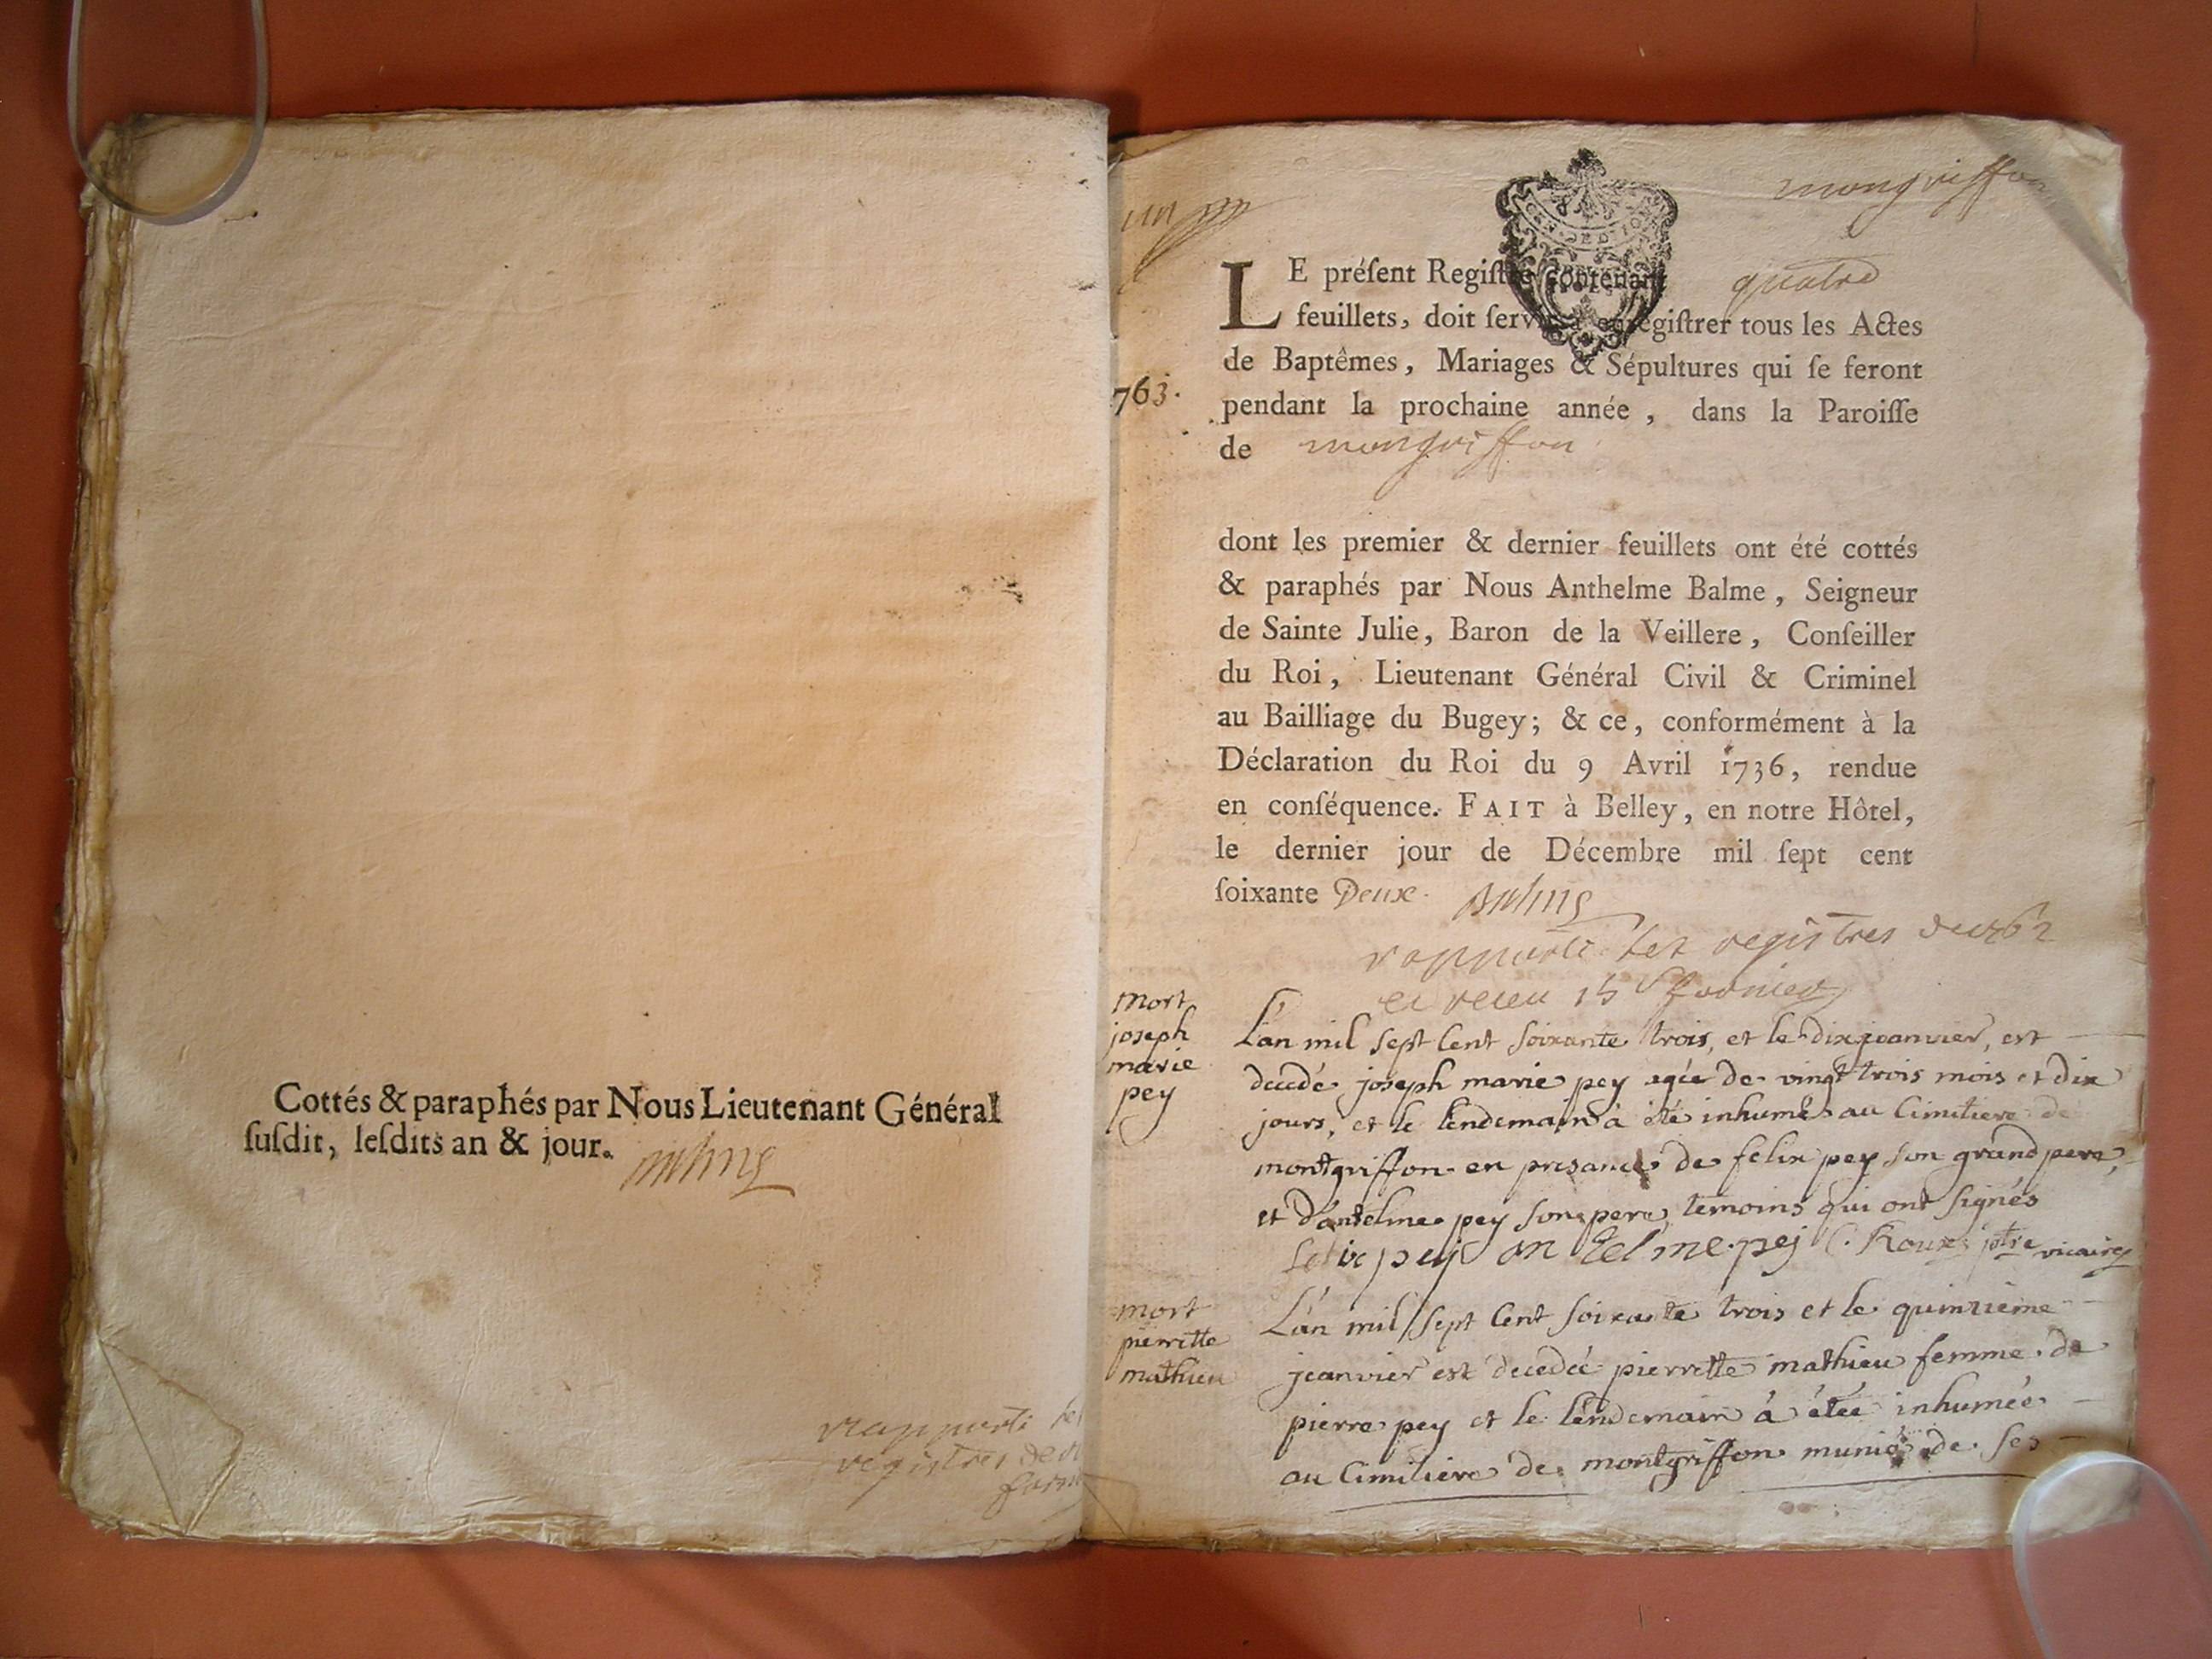 Cottés & paraphés par Nous Lieutenant Général
ſuſdit, leſdits an & jour.
rapporté les
registres de
mongriffon
quatre
LE préſent Regiſtre contenant
feuillets, doit ſervir à enregiſtrer tous les Actes
de Baptêmes, Mariages & Sépultures qui ſe feront
763.
pendant la prochaine année, dans la Paroiſſe
de mongriffon
dont les premier & dernier feuillets ont été cottés
& paraphés par Nous Anthelme Balme, Seigneur
de Sainte Julie, Baron de la Veillere, Conſeiller
du Roi, Lieutenant Général Civil & Criminel
au Bailliage du Bugey; & ce, conformément à la
Déclaration du Roi du 9 Avril 1736, rendue
en conſéquence. FAIT à Belley, en notre Hôtel,
le dernier jour de Décembre mil ſept cent
ſoixante Deux.
rapporté les registres de 1762
mort
joseph
marie
pey
L'an mil sept cent soixante trois, et le dix jeanvier, est
decedé joseph marie pey agée de vingt trois mois et dix
jours, et le lendemain à été inhumé au cimitiere de
montgriffon en presance de felix pey son grand pere,
et d'antelme pey son pere, temoins qui ont signés
felix pey an telme pej C. Roux ptre vicaire
mort
pierrette
mathieu
L'an mil sept cent soixante trois et le quinzieme
jeanvier est decedée pierrette mathieu femme de
pierre pey et le lendemain à étée inhumée
au cimitiere de montgriffon munie de ses